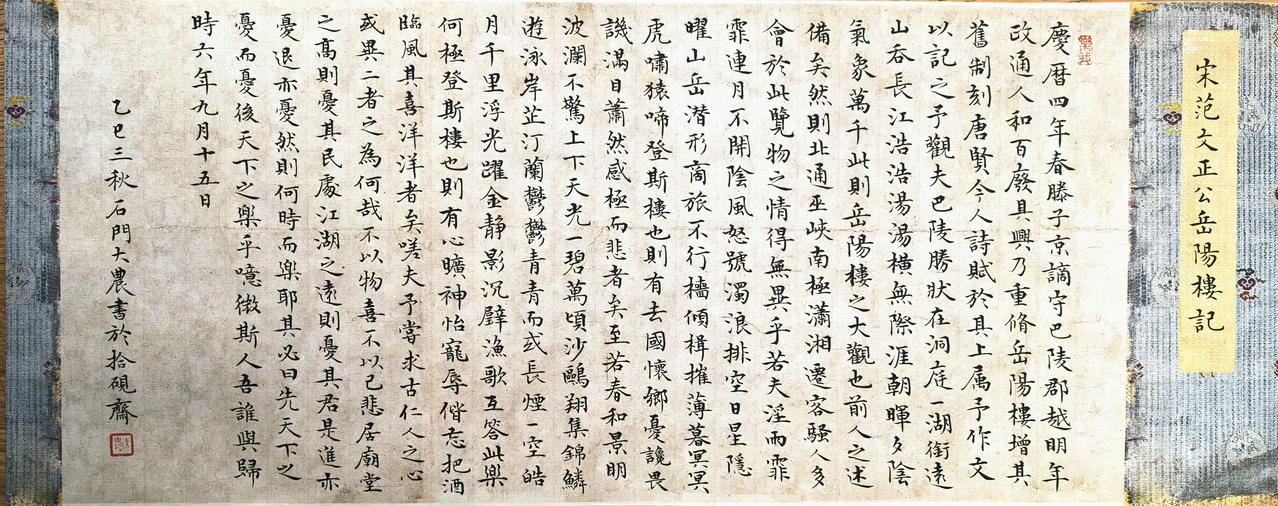 宋范文正公岳陽樓記
慶曆四年春滕子京謫守巴陵郡越明年
政通人和百廢具興乃重脩岳陽樓增其
舊制刻唐賢今人詩賦於其上属予作文
以記之予觀夫巴陵勝狀在洞庭一湖銜遠
山吞長江浩浩湯湯橫無際涯朝暉夕陰
氣象萬千此則岳陽樓之大觀也前人之述
備矣然則北通巫峽南極瀟湘遷客騷人多
會於此覽物之情得無異乎若夫淫雨霏
霏連月不開陰風怒號濁浪排空日星隱
曜山岳潛形商旅不行檣傾楫摧薄暮冥冥
虎嘯猿啼登斯樓也則有去國懷鄉憂讒畏
譏滿目蕭然感極而悲者矣至若春和景明
波瀾不驚上下天光一碧萬頃沙鷗翔集錦鱗
游泳岸芷汀蘭鬱鬱青青而或長煙一空皓
月千里浮光躍金静影沉璧漁歌互答此樂
何極登斯樓也則有心曠神怡寵辱偕忘把酒
臨風其喜洋洋者矣嗟夫予嘗求古仁人之心
或異二者之為何哉不以物喜不以己悲居廟堂
之高則憂其民處江湖之遠則憂其君是進亦
憂退亦憂然則何時而樂耶其必曰先天下之
憂而憂後天下之樂乎噫微斯人吾誰與歸
時六年九月十五日
乙巳三秋石門大農書於拾硯齋